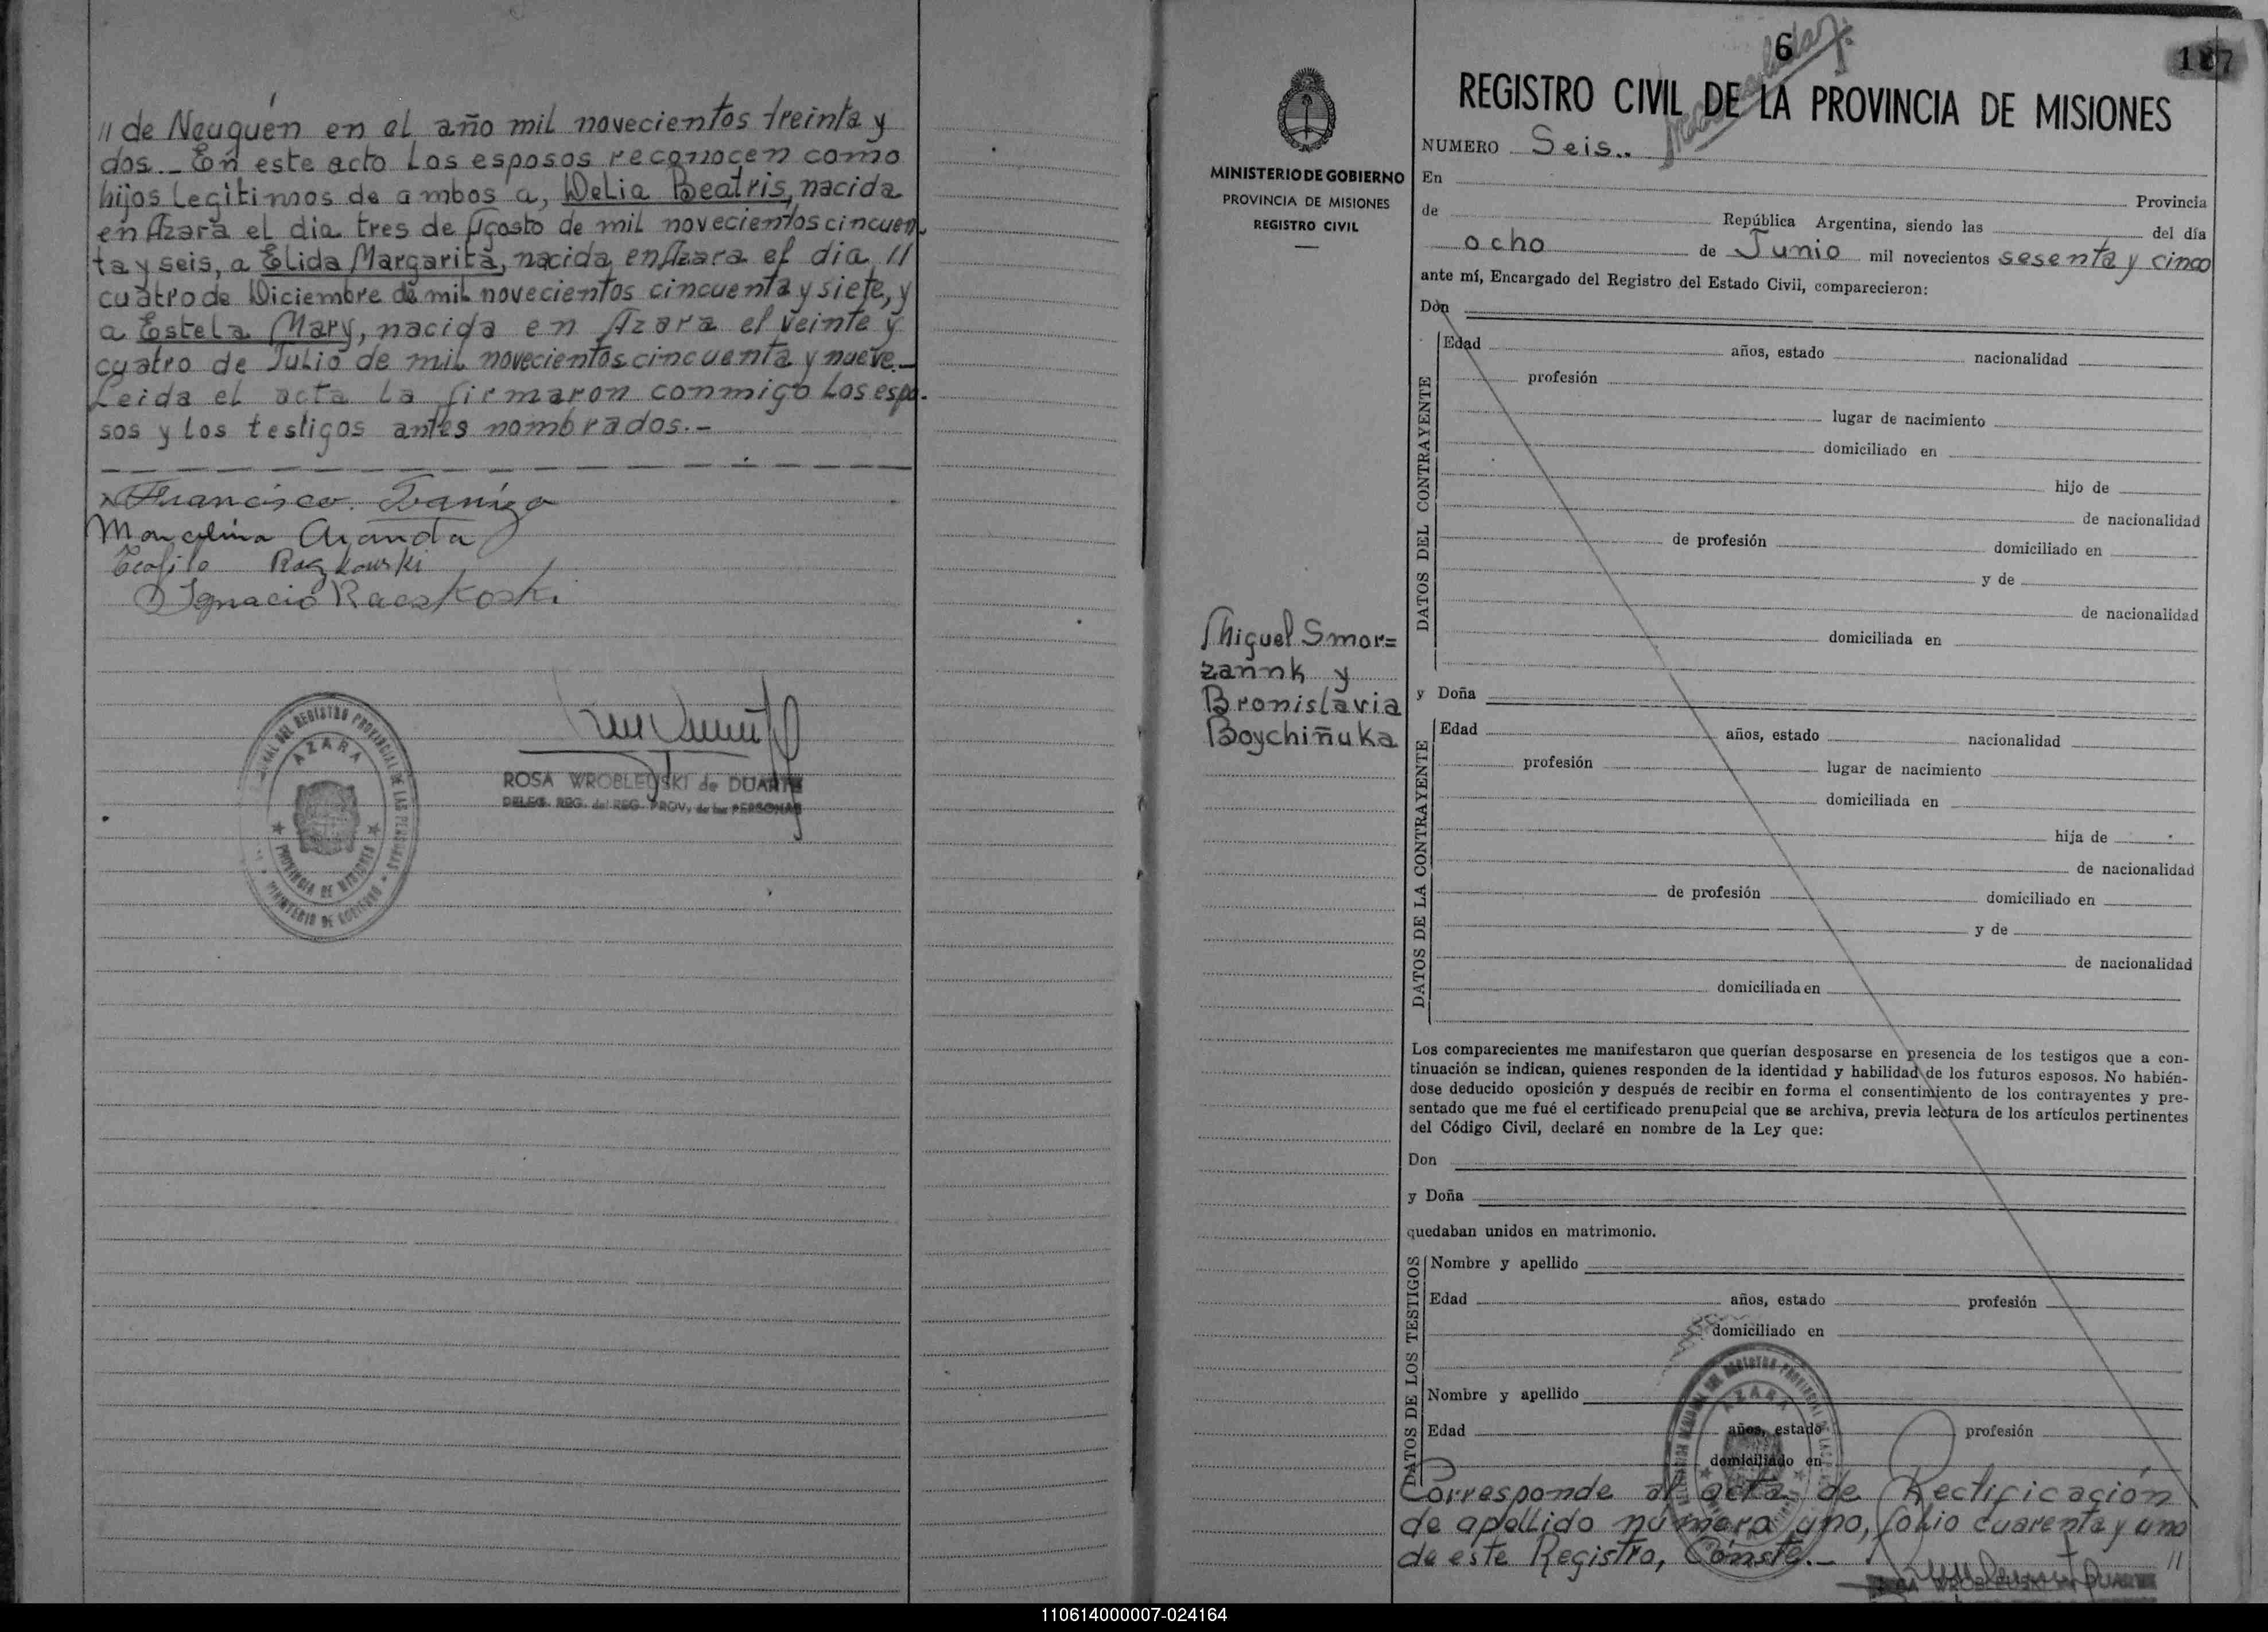 // de Neuquén en el año mil novecientos treinta y
dos._ En este acto los esposos reconocen como
hijos legitimos de ambos a, Delia Beatris, nacida
en Azara el dia tres de Agosto de mil novecientos cincuen
ta y seis, a Elida Margarita, nacida en Azara el dia //
cuatro de Diciembre de mil novecientos cincuenta y siete, y
a Estela Mary, nacida en Azara el veinte y
cuatro de Julio de mil novecientos cincuenta y nueve._
Leida el acta la firmaron conmigo los espo-
sos y los testigos antes nombrados.-
Francisco
Marcelina Aranda
Teofilo Raczkowski
Ignacio Raczkoski
REGISTRO PROVINCIAL DE LAS PERSONAS
AZARA
PROVINCIA DE MISIONES
MINISTERIO DE GOBIERNO
ROSA WROBLEUSKI de DUARTE
DELEG. REG. del REG. PROV. de las PERSONAS
MINISTERIO DE GOBIERNO
PROVINCIA DE MISIONES
REGISTRO CIVIL
Miguel Smor=
zannk y
Bronislavia
Boychiñuka
6
187
REGISTRO CIVIL DE LA PROVINCIA DE MISIONES
NUMERO Seis..
En Provincia
de República Argentina, siendo las del día
ocho de Junio mil novecientos sesenta y cinco
ante mí, Encargado del Registro del Estado Civil, comparecieron:
Don
DATOS DEL CONTRAYENTE
Edad años, estado nacionalidad
profesión
lugar de nacimiento
domiciliado en
hijo de
de nacionalidad
de profesión domiciliado en
y de
de nacionalidad
domiciliada en
y Doña
DATOS DE LA CONTRAYENTE
Edad años, estado nacionalidad
profesión lugar de nacimiento
domiciliada en
hija de
de nacionalidad
de profesión domiciliado en
y de
de nacionalidad
domiciliada en
Los comparecientes me manifestaron que querían desposarse en presencia de los testigos que a con-
tinuación se indican, quienes responden de la identidad y habilidad de los futuros esposos. No habién-
dose deducido oposición y después de recibir en forma el consentimiento de los contrayentes y pre-
sentado que me fué el certificado prenupcial que se archiva, previa lectura de los artículos pertinentes
del Código Civil, declaré en nombre de la Ley que:
Don
y Doña
quedaban unidos en matrimonio.
DATOS DE LOS TESTIGOS
Nombre y apellido
Edad años, estado profesión
domiciliado en
Nombre y apellido
Edad años, estado profesión
domiciliado en
AZARA
Corresponde al acta de Rectificación
de apellido número uno, folio cuarenta y uno
de este Registro, Conste.- //
ROSA WROBLEUSKI de DUARTE
110614000007-024164